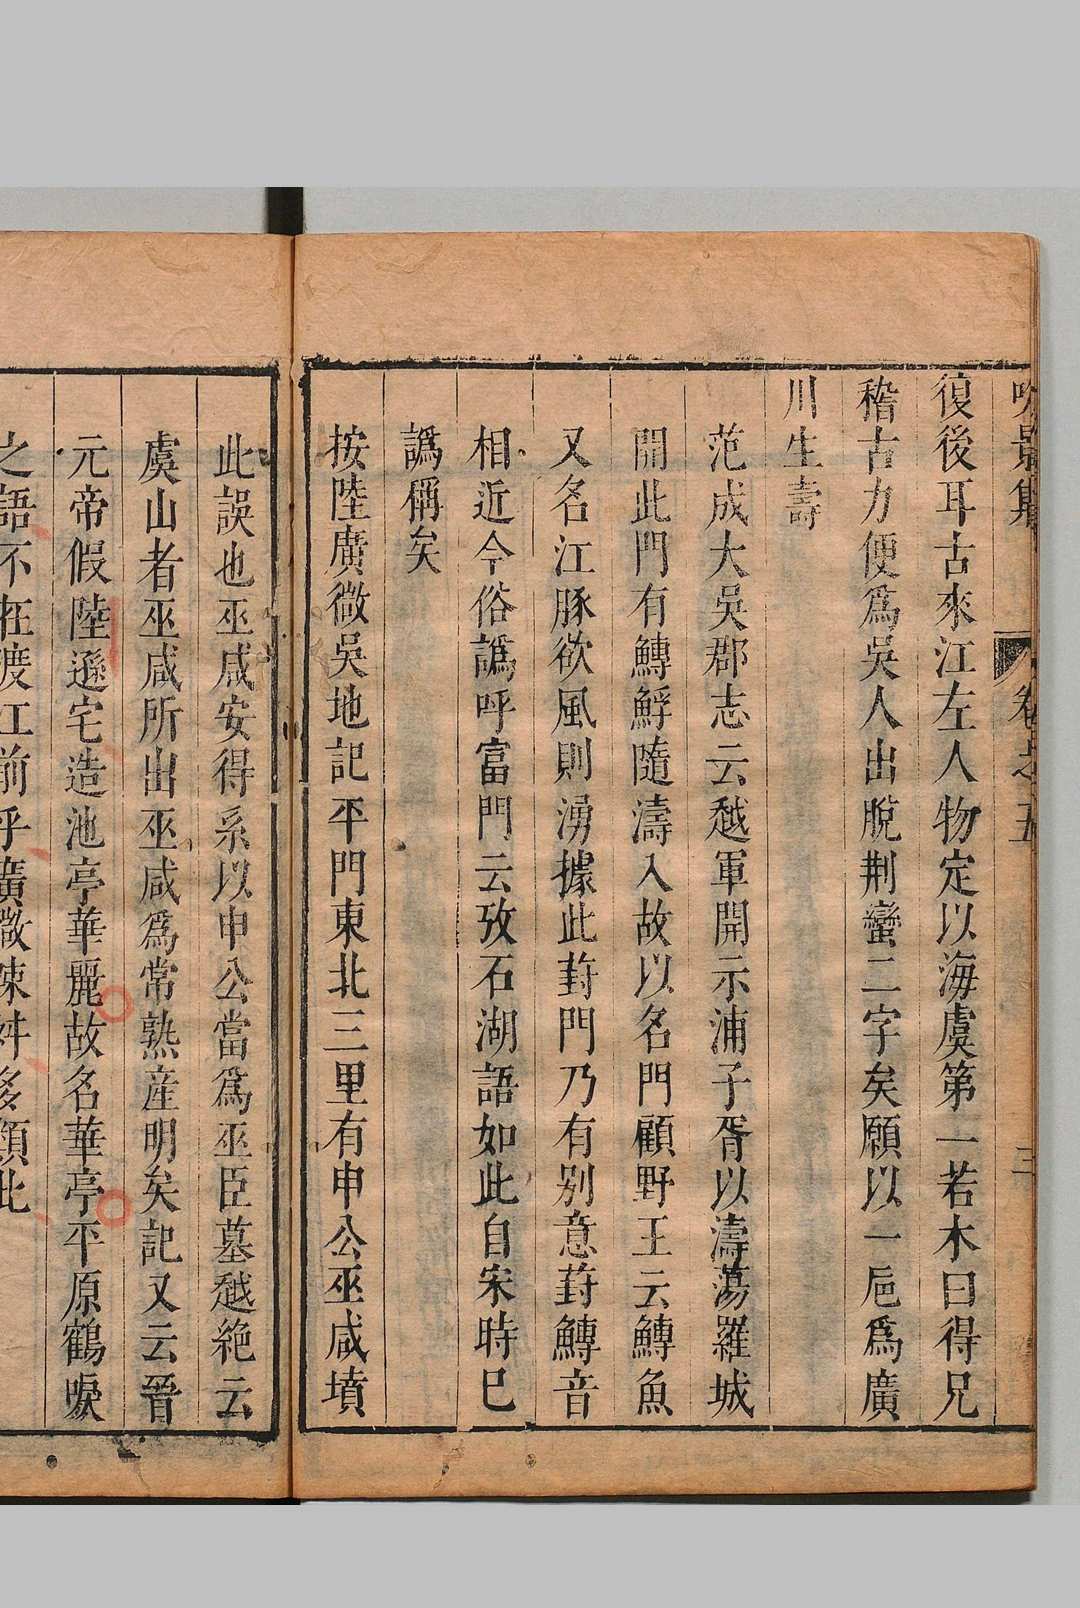 吹景集
卷之五
三
復後耳古來江左人物定以海虞第一若木曰得兄
稽古力便爲吳人出脫荆蠻二字矣願以一巵爲廣
川生壽
范成大吳郡志云越軍開示浦子胥以濤蕩羅城
開此門有鱄鯙隨濤入故以名門顧野王云鱄魚
又名江豚欲風則湧據此葑門乃有别意葑鱄音
相近今俗譌呼富門云攷石湖語如此自宋時已
譌稱矣
按陸廣微吳地記平門東北三里有申公巫咸墳
此誤也巫咸安得系以申公當爲巫臣墓越絶云
虞山者巫咸所出巫咸爲常熟産明矣記又云晉
元帝假陸遜宅造池亭華麗故名華亭平原鶴唳
之語不在渡江前乎廣微疎舛多類此